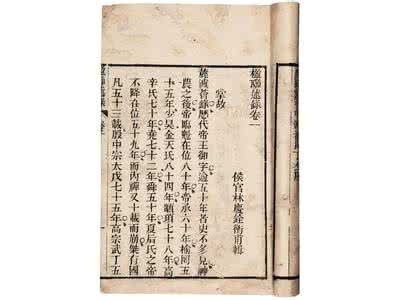 楹聯述錄卷一
侯官林慶銓衡甫輯
掌故
薈錄歷代帝王御宇逾五十年者史不多見神
農之後帝臨魁在位八十年帝承六十年榆岡五
十五年少昊金天氏八十四年顓頊七十八年高
辛氏七十年堯七十二年舜五十年夏后氏之帝
不降在位五十九年而內禪又十載而崩桀有國
凡五十三載殷中宗太戊七十五年高宗武丁五